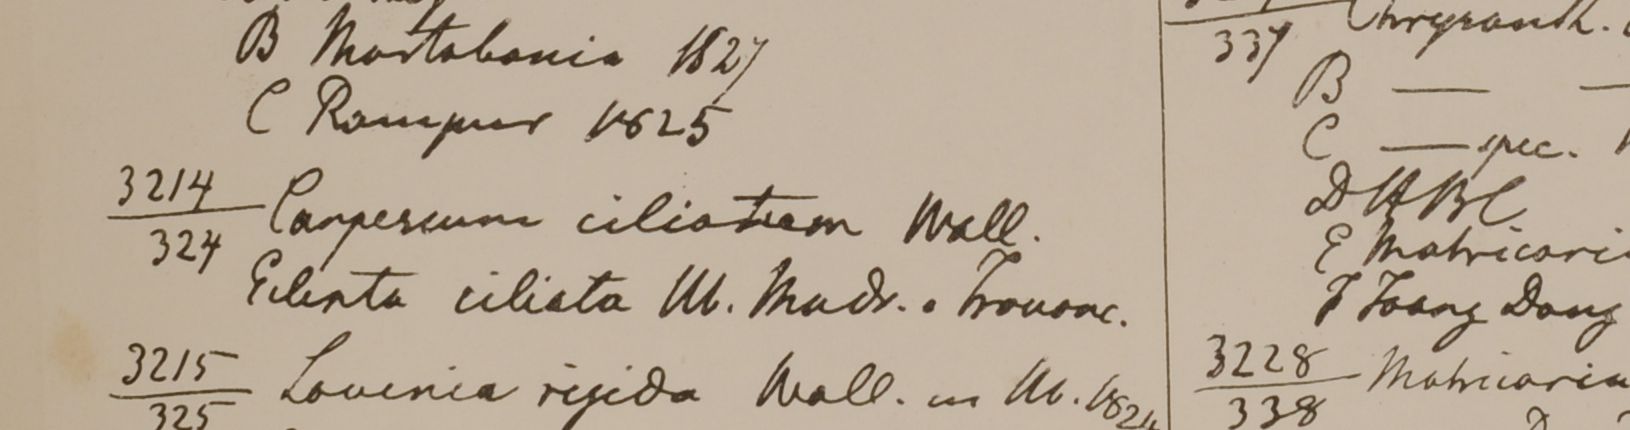 B Martabania 1827
C Rampur 1825
3214 Carpesium ciliatum Wall.
324
ciliata Hb. Madr. Travanc.
3215 Lavenia rigida Wall. in Hb. 1824
325
337 Chrysanth.
B —
C — spec.
D HBC
E Matricaria
F Toong Dong
3228 Matricaria
338